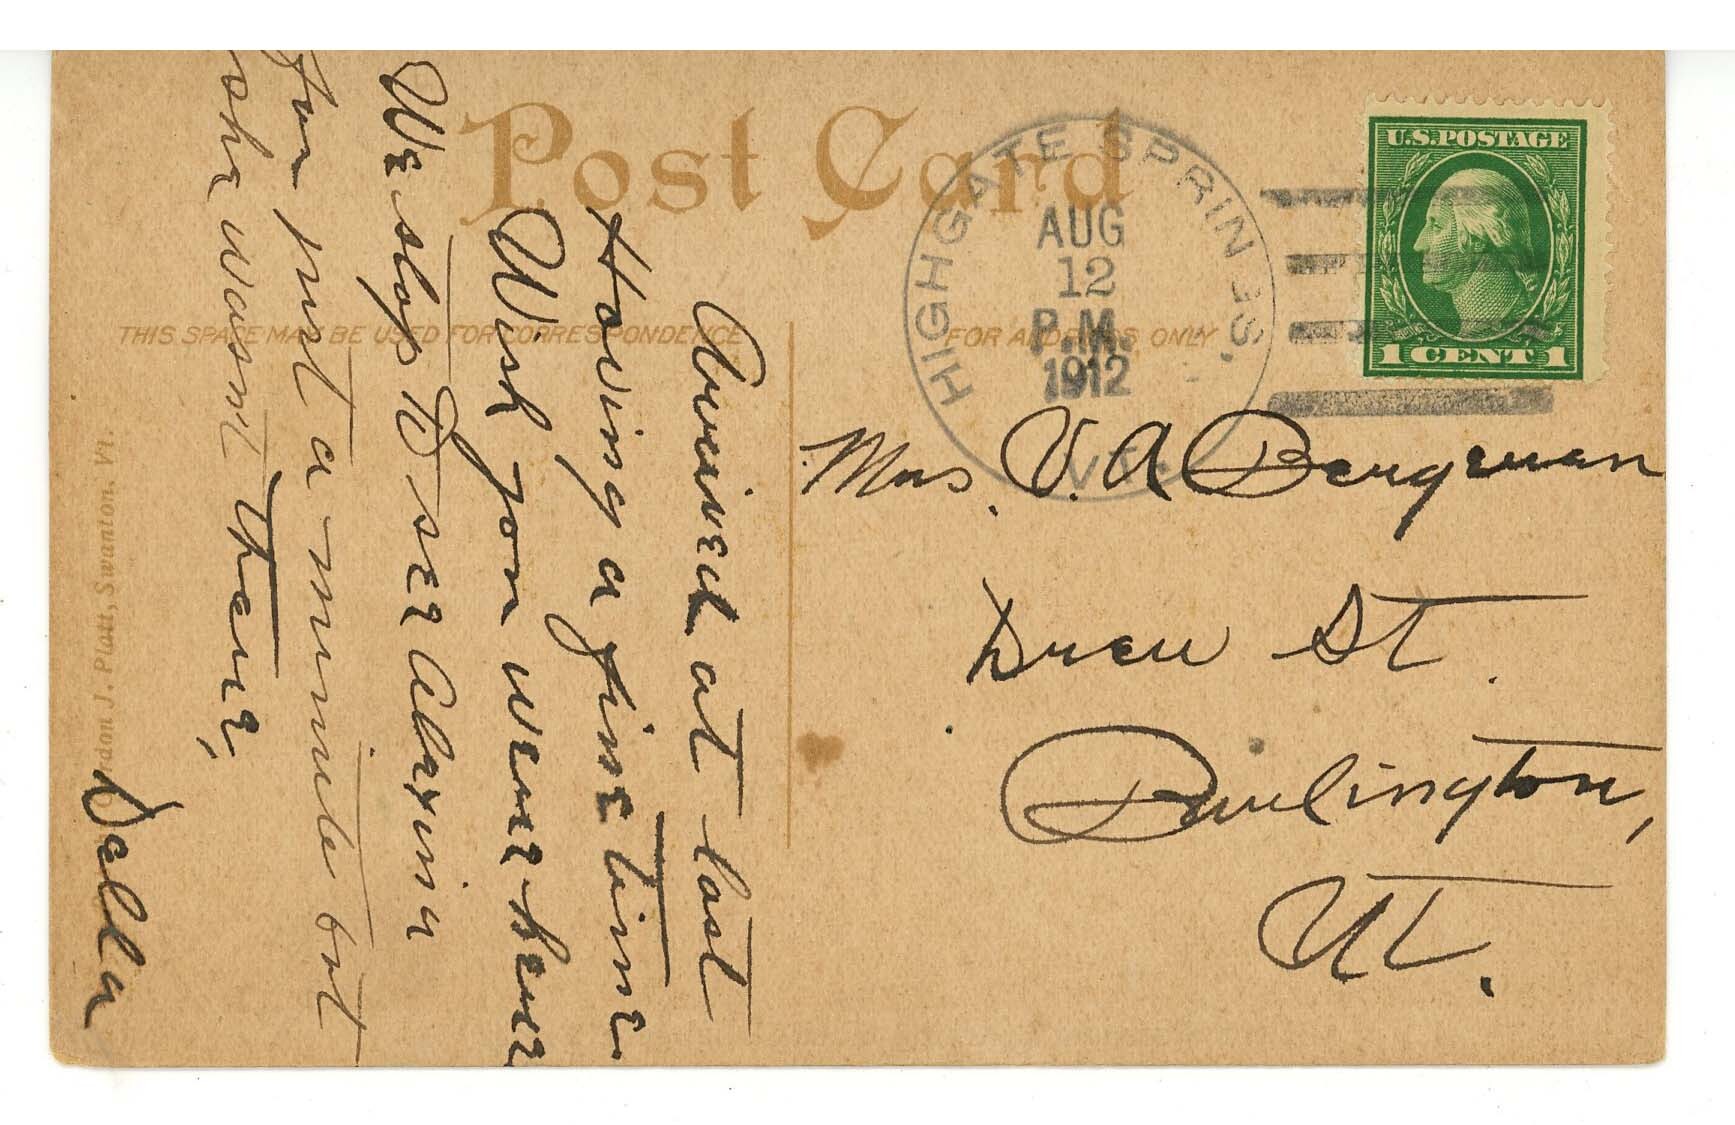 Post Card
THIS SPACE MAY BE USED FOR CORRESPONDENCE
FOR ADDRESS ONLY
HIGHGATE SPRINGS, VT.
AUG
12
P.M.
1912
U.S. POSTAGE
1 CENT 1
Mrs. V. A Bergeman
Drew St.
Burlington,
Vt.
Arrived at last
Having a fine time
Wish you were here
We stop to see
for just a minute but
she wasnt there,
Della
Gordon J. Platt, Swanton, Vt.